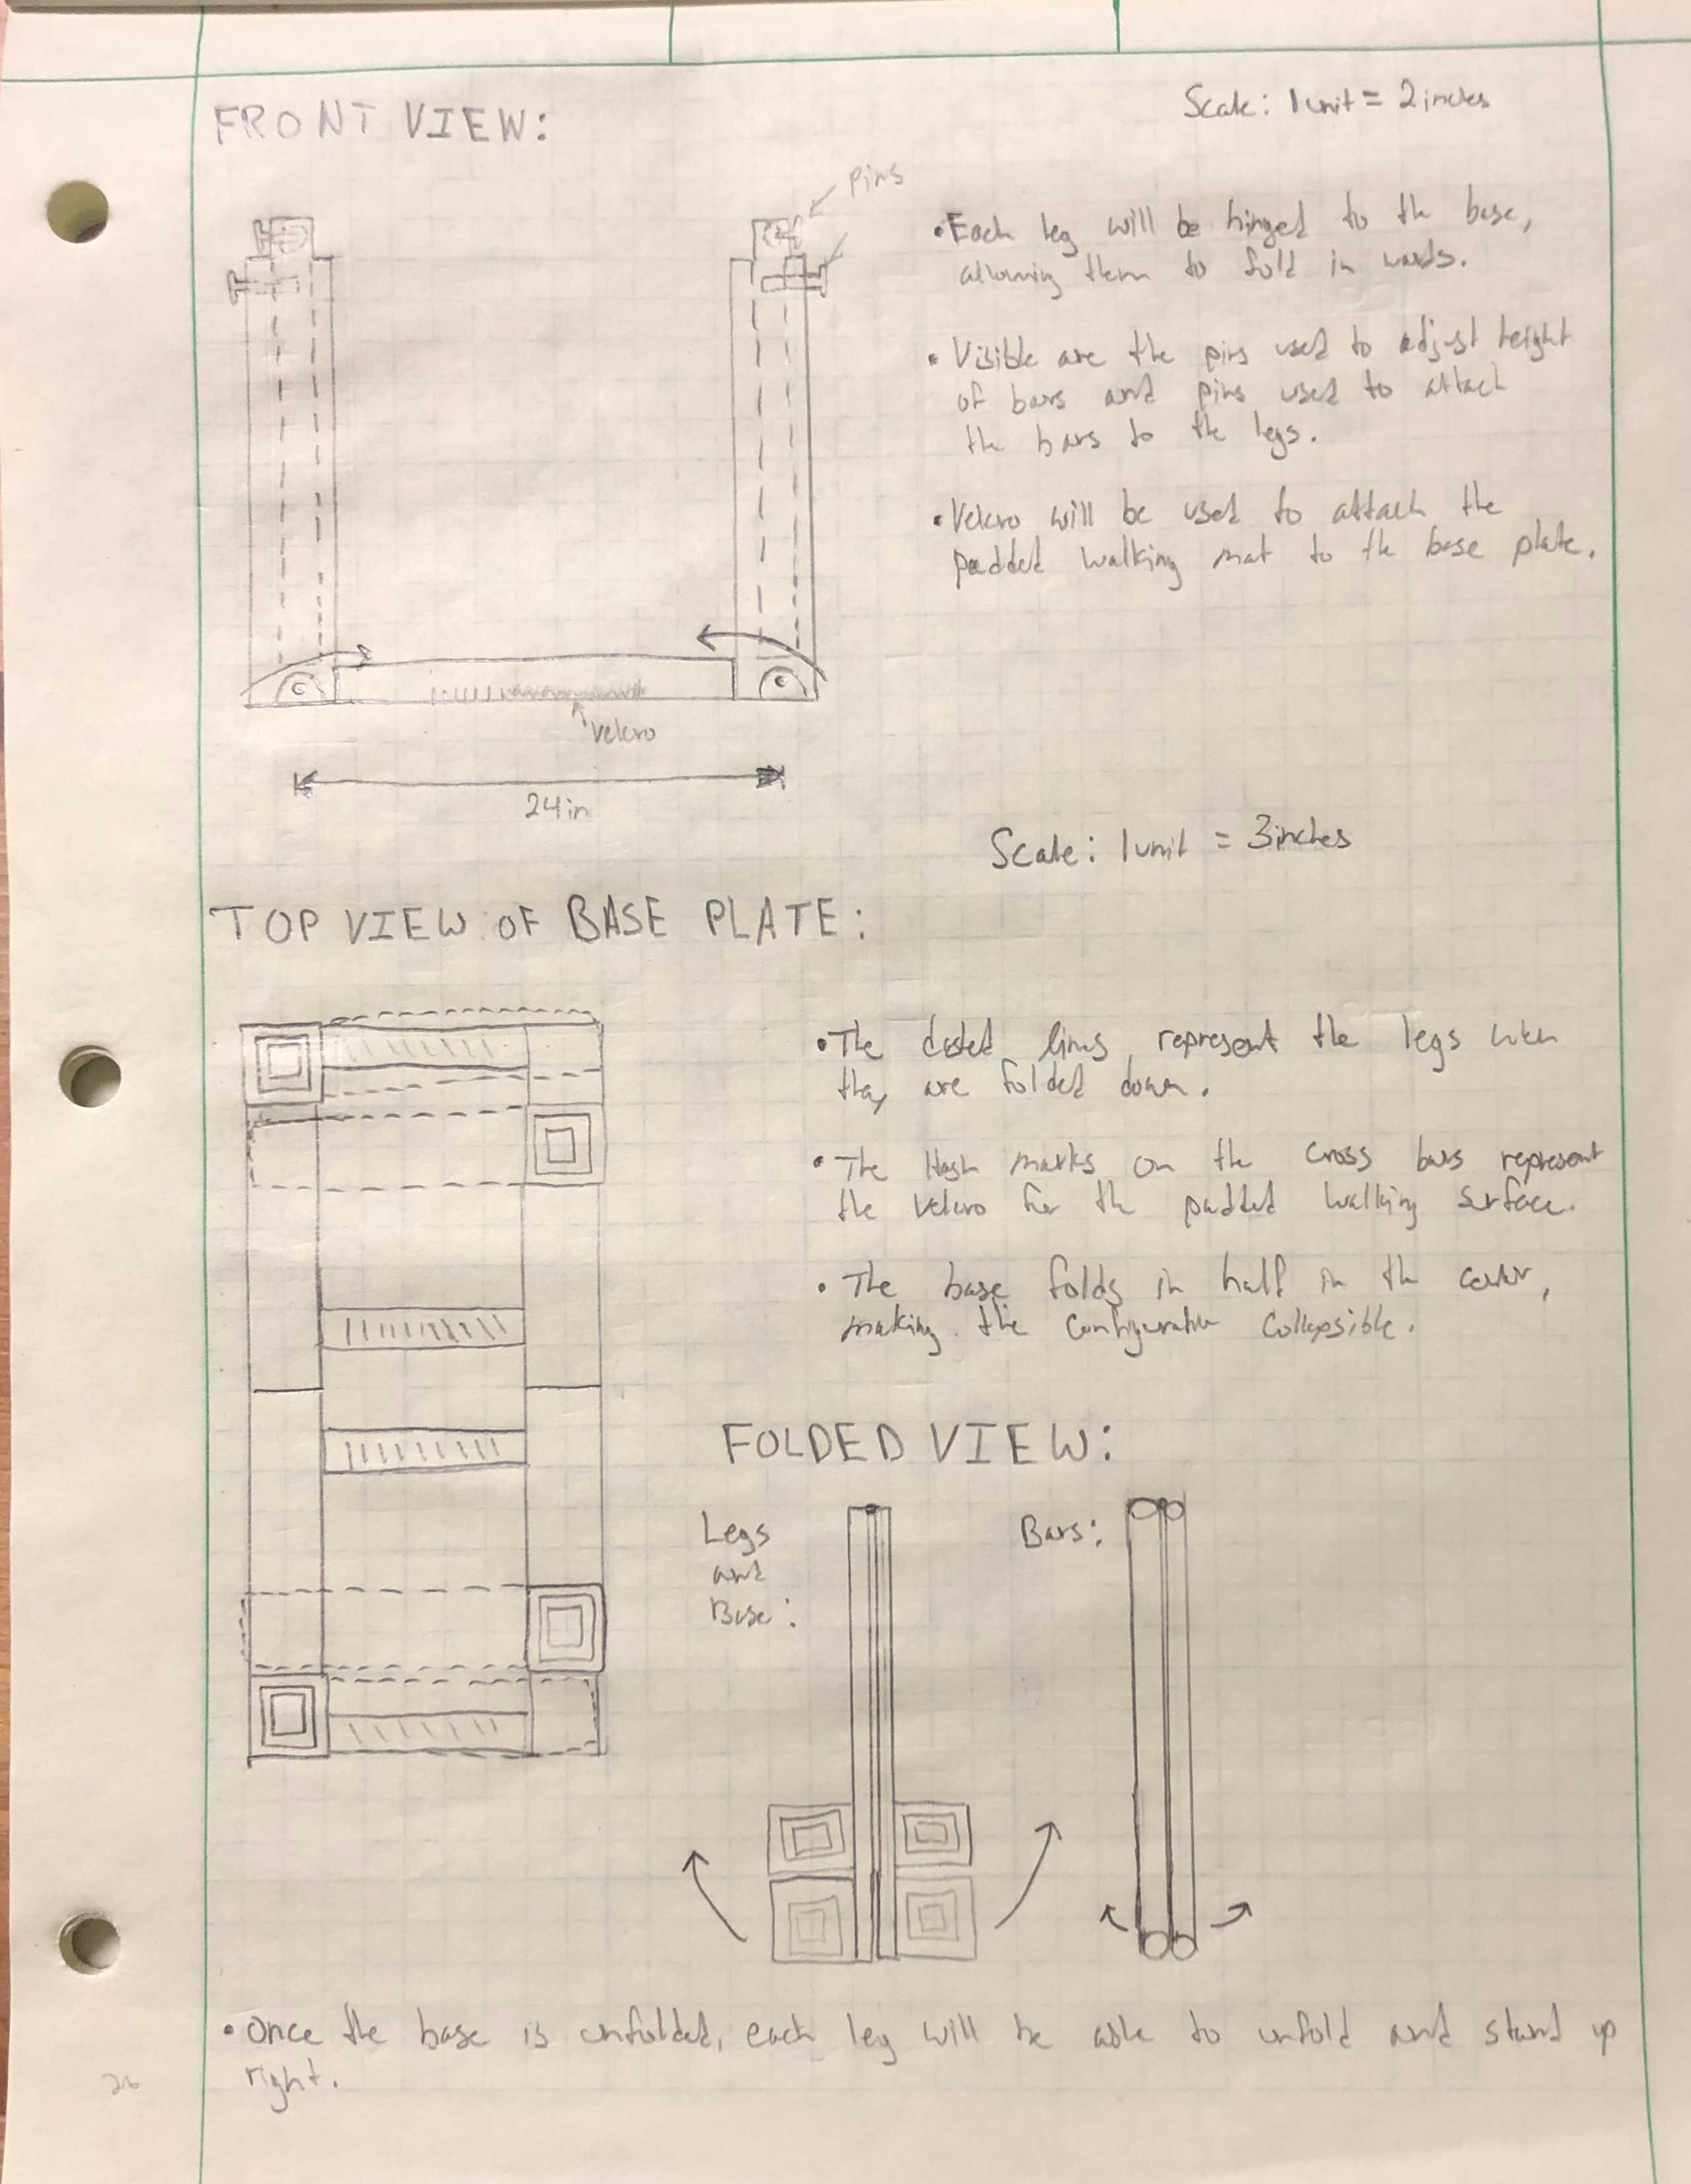 FRONT VIEW:
Scale: 1 unit = 2 inches
pins
• Each leg will be hinged to the base,
allowing them to fold in wards.
• Visible are the pins used to adjust height
of bars and pins used to attach
the bars to the legs.
• Velcro will be used to attach the
padded walking mat to the base plate.
Velcro
24in
Scale: 1 unit = 3 inches
TOP VIEW OF BASE PLATE:
• The doted lines represent the legs when
they are folded down.
• The Hash marks on the cross bars represent
the velcro for the padded walking surface.
• The base folds in half in the center,
making the configuration collapsible.
FOLDED VIEW:
Legs
and
Base:
Bars:
• Once the base is unfolded, each leg will be able to unfold and stand up
right.